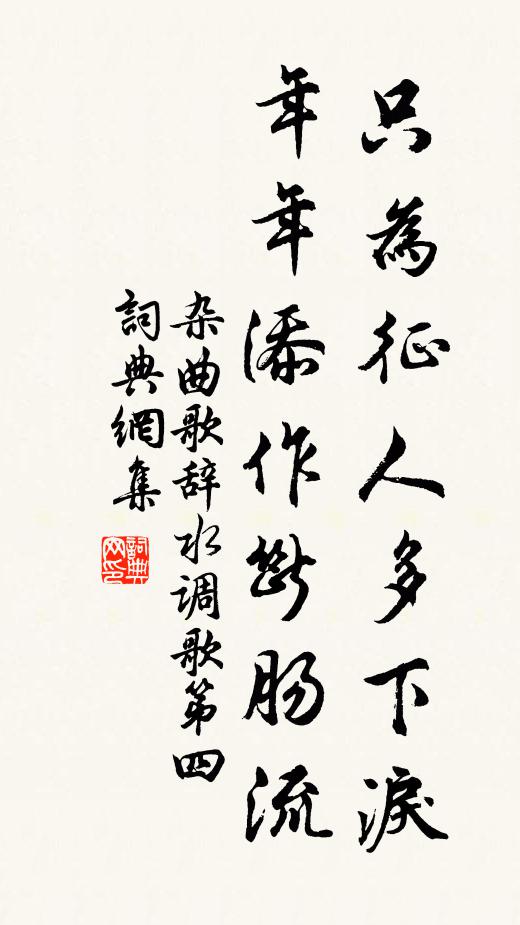 只為征人多下淚
年年添作断肠流
杂曲歌辞水调歌第四
詞典網集
詞典網印